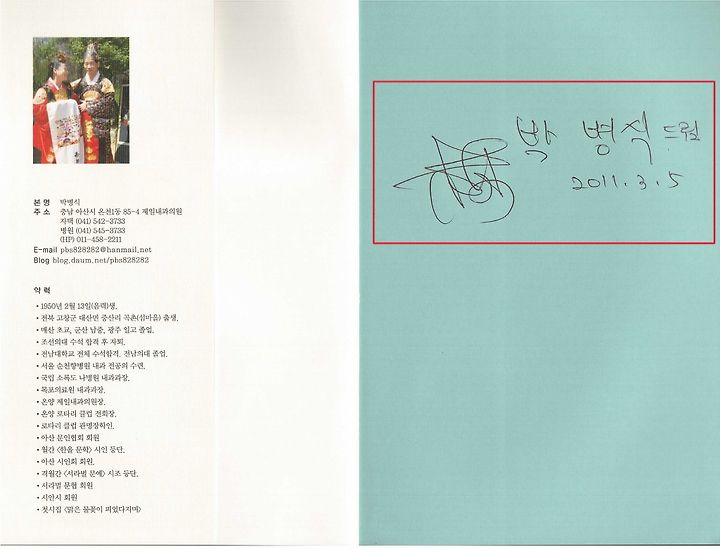 본 명 박병식
주 소 충남 아산시 온천1동 85-4 제일내과의원
자택 (041) 542-3733
병원 (041) 545-3733
(HP) 011-458-2211
E-mail pbs828282@hanmail.net
Blog blog.daum.net/pbs828282
약 력
•1950년 2월 13일(음력)생.
•전북 고창군 대산면 중산리 곡촌(실마을) 출생.
•매산 초교, 군산 남중, 광주 일고 졸업.
•조선의대 수석 합격 후 자퇴.
•전남대학교 전체 수석합격. 전남의대 졸업.
•서울 순천향병원 내과 전공의 수련.
•국립 소록도 나병원 내과과장.
•목포의료원 내과과장.
•온양 제일내과의원장.
•온양 로타리 클럽 전회장.
•로타리 클럽 관명장학인.
•아산 문인협회 회원
•월간 <한울 문학> 시인 등단.
•아산 시인회 회원.
•격월간 <서라벌 문예> 시조 등단.
•서라벌 문협 회원
•시안시 회원
•첫시집 <맑은 물꽃이 피었다지며>
박 병식 드림
2011.3.5